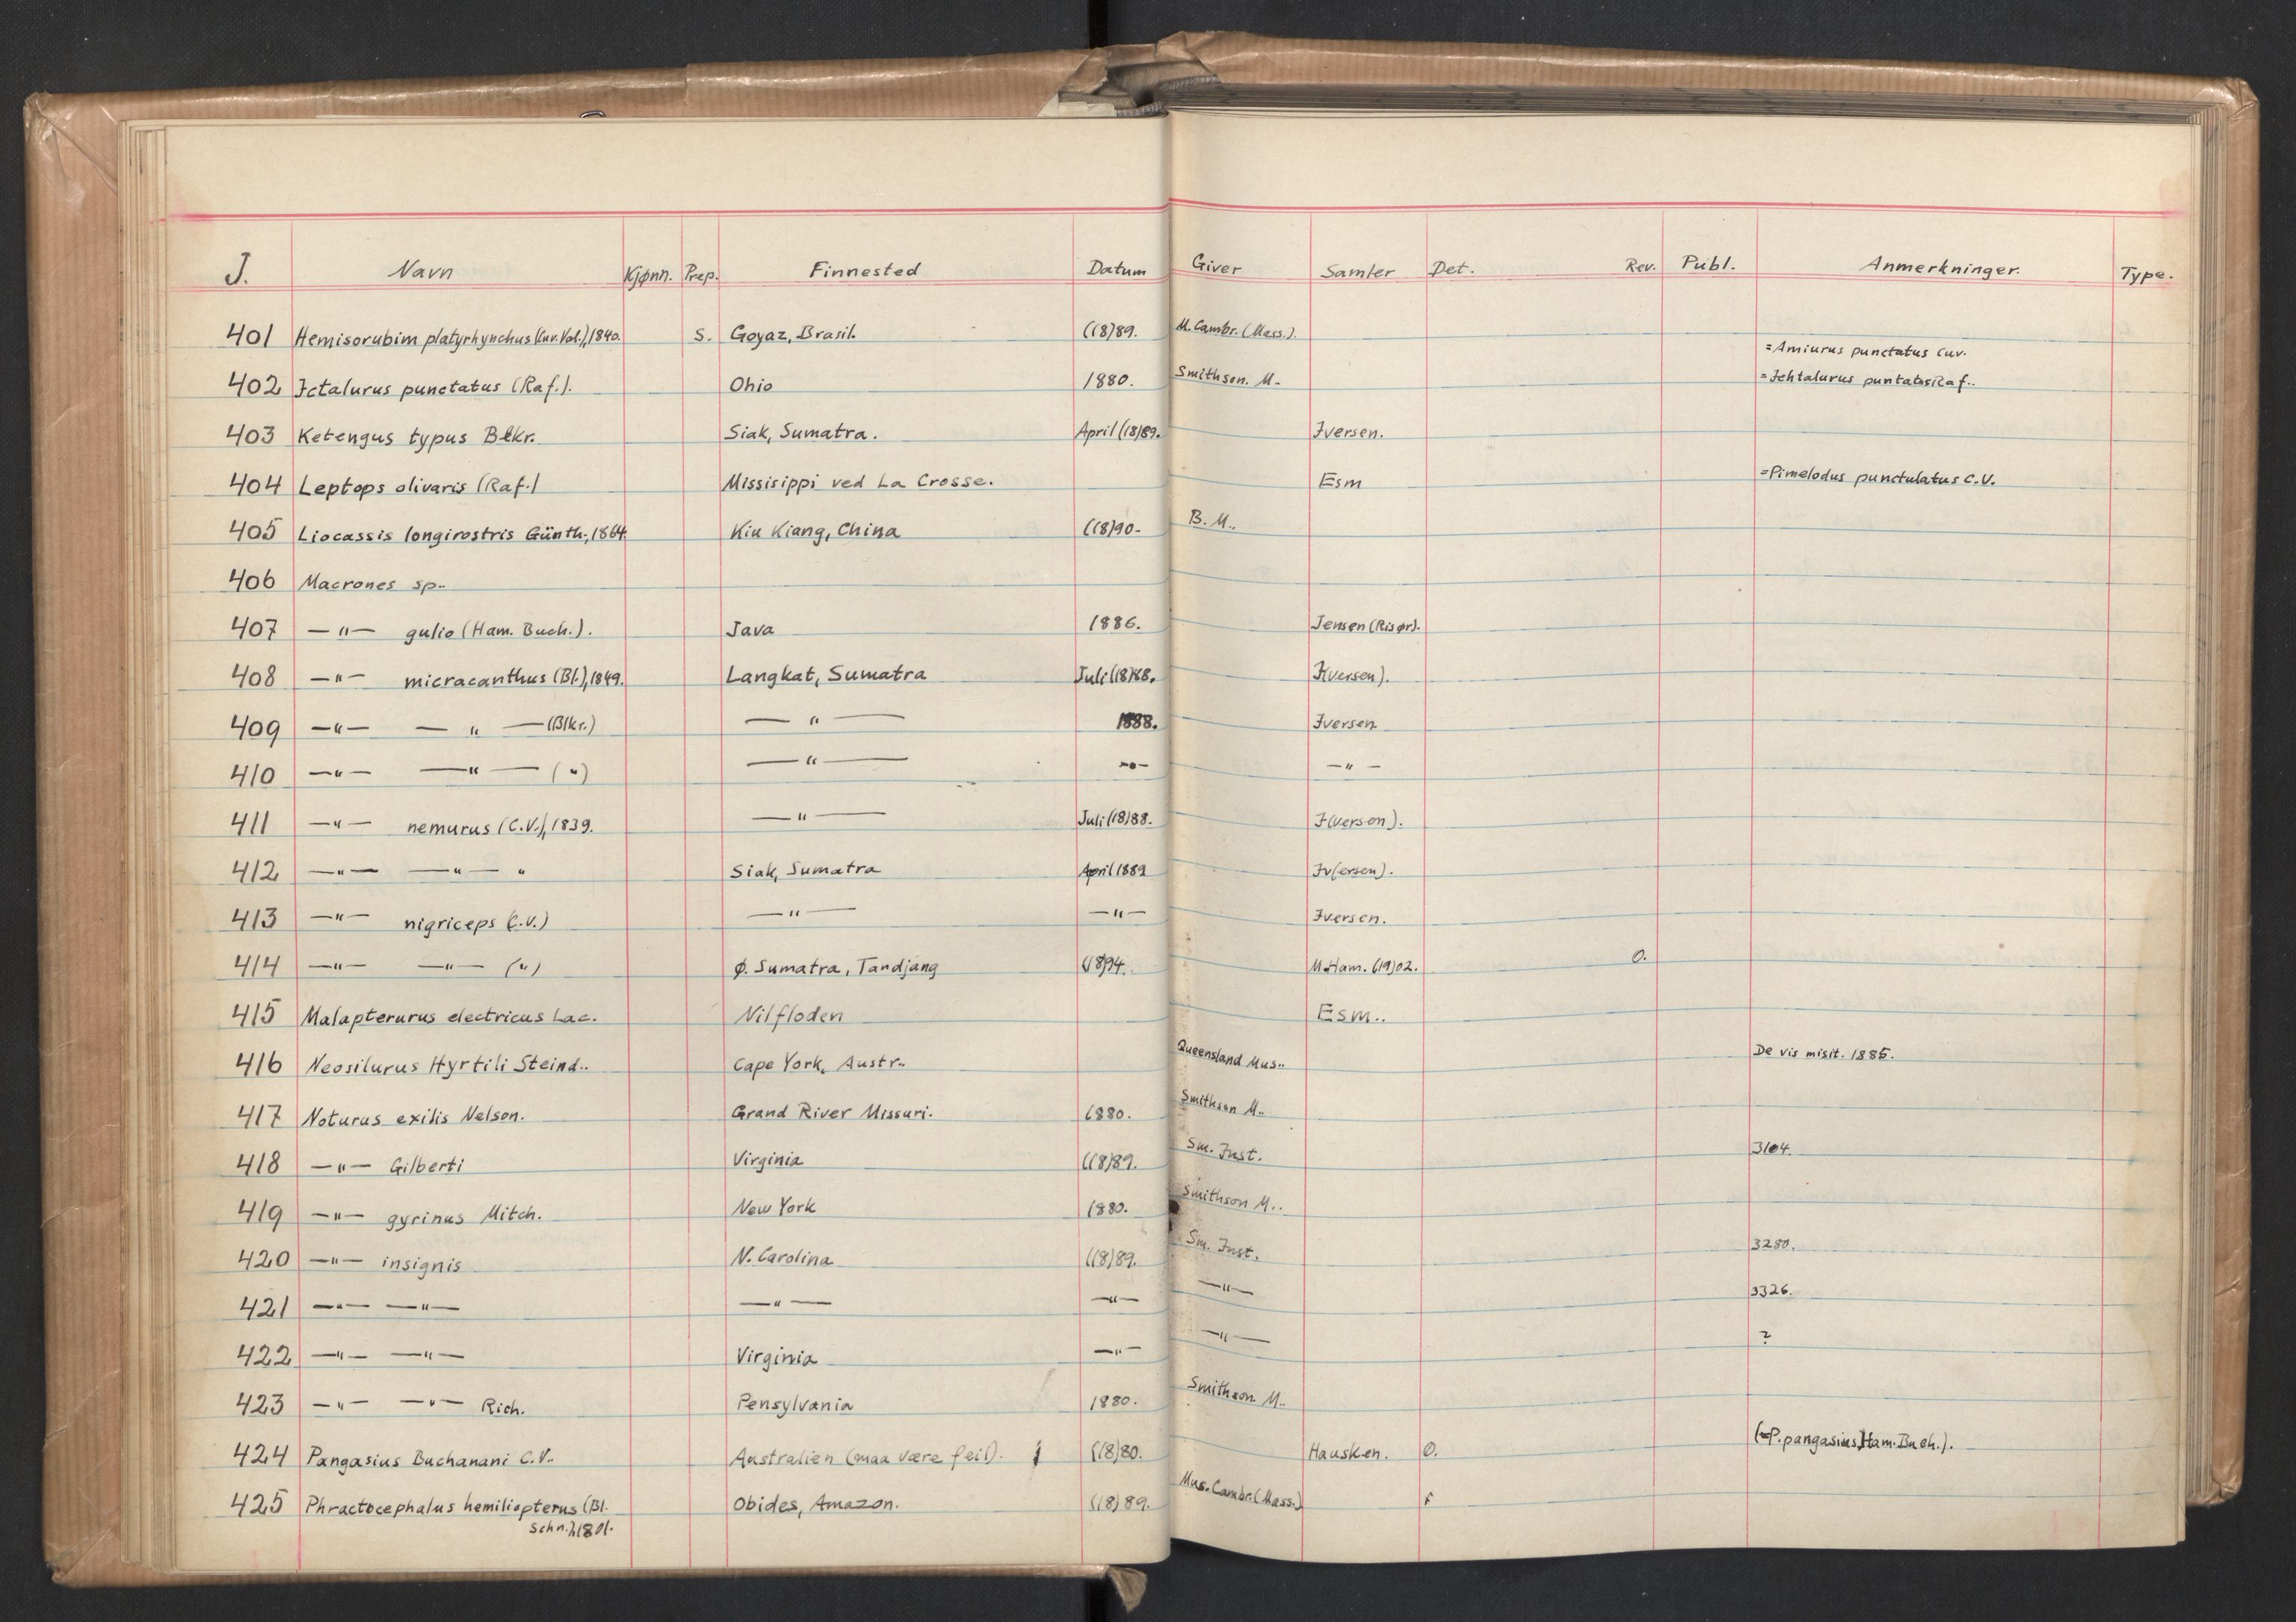 J. Navn Kjønn. Prep. Finnested Datum Giver Samler Det. Rev. Publ. Anmerkninger. Type.
401 Hemisorubim platyrhynchus (Cuv. Val.), 1840. S. Goyaz, Brasil. ((18)89. M. Cambr. (Mass.).
= Amiurus punctatus Cuv.
402 Ictalurus punctatus (Raf.). Ohio 1880. Smithson. M. = Ichtalurus puntatus Raf..
403 Ketengus typus Blkr. Siak, Sumatra. April (18)89. Iversen.
404 Leptops olivaris (Raf.) Missisippi ved La Crosse. Esm = Pimelodus punctulatus C.V.
405 Liocassis longirostris Günth., 1864. Kiu Kiang, China ((18)90- B. M..
406 Macrones sp..
407 —"— gulio (Ham. Buch.). Java 1886. Jensen (Risør).
408 —"— micracanthus (Bl.), 1849. Langkat, Sumatra Juli (18)88. I(versen).
409 —"— — " — (Blkr.) — " — 1888. Iversen
410 —"— — " — ( " ) — " — —"— — " —
411 —"— nemurus (C.V.), 1839. — " — Juli (18)88. I(versen).
412 —"— —"— " Siak, Sumatra April 1889 Iv(ersen).
413 —"— nigriceps (C.V.) — " — —"— Iversen.
414 —"— —"— ( " ) Ø. Sumatra, Tandjang (18)94. M. Ham. (19)02. O.
415 Malapterurus electricus Lac. Nilfloden Esm..
416 Neosilurus Hyrtili Steind.. Cape York, Austr.. Queensland Mus.. De vis misit. 1885.
417 Noturus exilis Nelson. Grand River Missuri. 1880. Smithson M..
418 —"— Gilberti Virginia ((18)89. Sm. Inst. 3104.
419 —"— gyrinus Mitch. New York 1880. Smithson M..
420 —"— insignis N. Carolina ((18)89. Sm. Inst. 3280.
421 —"— —"— —"— —"— —"— 3326.
422 —"— —"— Virginia —"— —"— ?
423 —"— —"— Rich. Pensylvania 1880. Smithson M..
424 Pangasius Buchanani C.V.. Australien (maa være feil). ((18)80. Hausken. O. (=P. pangasius, Ham. Buch.).
425 Phractocephalus hemiliopterus (Bl. Obides, Amazon. ((18)89. Mus. Cambr. (Mass.)
Schn.), 1801.